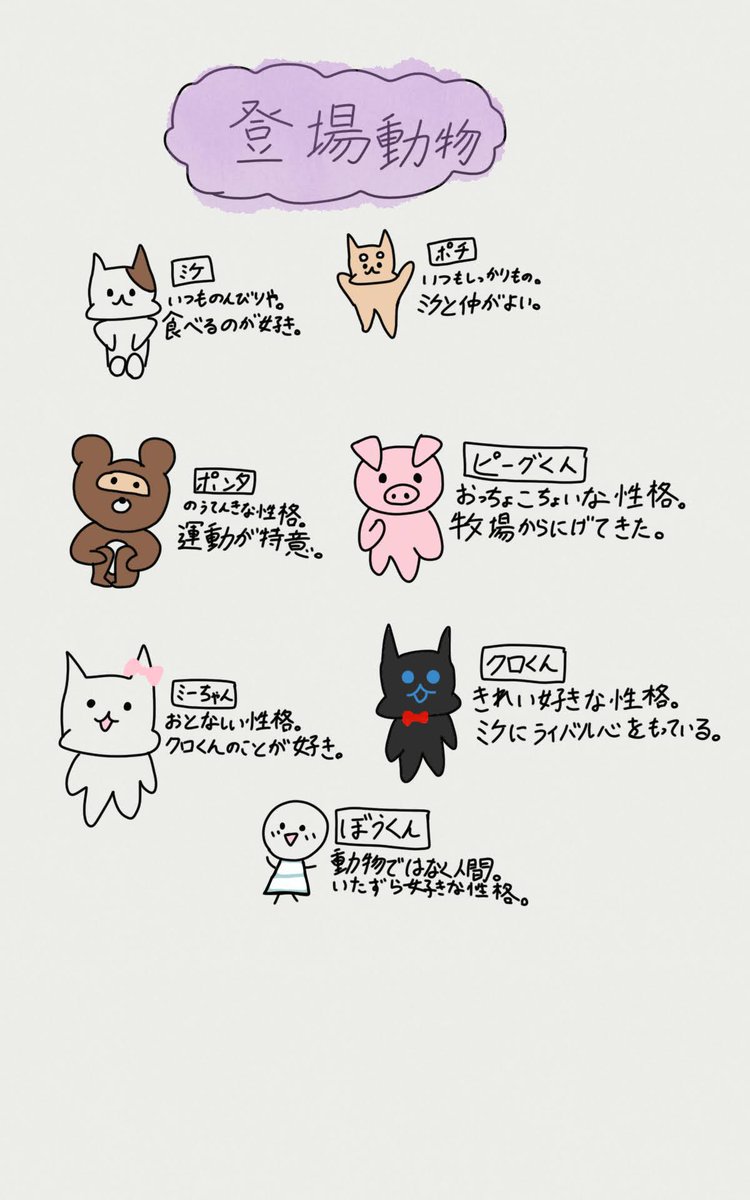 登場動物
ミケ
いつものんびりや。
食べるのが好き。
ポチ
いつもしっかりもの。
ミケと仲がよい。
ポンタ
のうてんきな性格。
運動が特意。
ピーグくん
おっちょこちょいな性格。
牧場からにげてきた。
ミーちゃん
おとなしい性格。
クロくんのことが好き。
クロくん
きれい好きな性格。
ミケにライバル心をもっている。
ぼうくん
動物ではなく人間。
いたずら好きな性格。